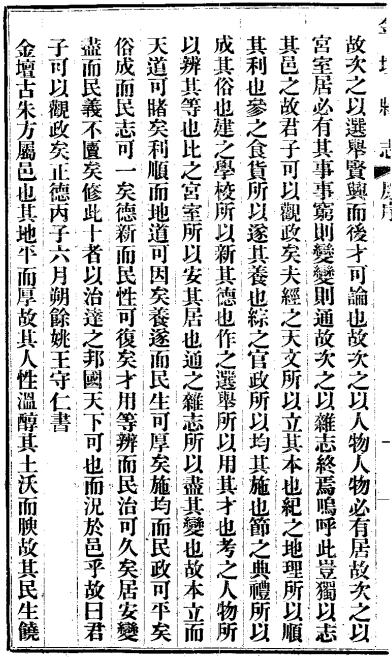 故次之以選舉賢興而後才可論也故次之以人物人物必有居故次之以
宮室居必有其事事窮則變變則通故次之以雜志終焉嗚呼此豈獨以志
其邑之故君子可以觀政矣夫經之天文所以立其本也紀之地理所以順
其利也參之食貨所以遂其養也綜之官政所以均其施也節之典禮所以
成其俗也建之學校所以新其德也作之選舉所以用其才也考之人物所
以辨其等也比之宮室所以安其居也通之雜志所以盡其變也故本立而
天道可睹矣利順而地道可因矣養遂而民生可厚矣施均而民政可平矣
俗成而民志可一矣德新而民性可復矣才用等辨而民治可久矣居安變
盡而民義不匱矣修此十者以治達之邦國天下可也而況於邑乎故曰君
子可以觀政矣正德丙子六月朔餘姚王守仁書
金壇古朱方屬邑也其地平而厚故其人性溫醇其土沃而腴故其民生饒